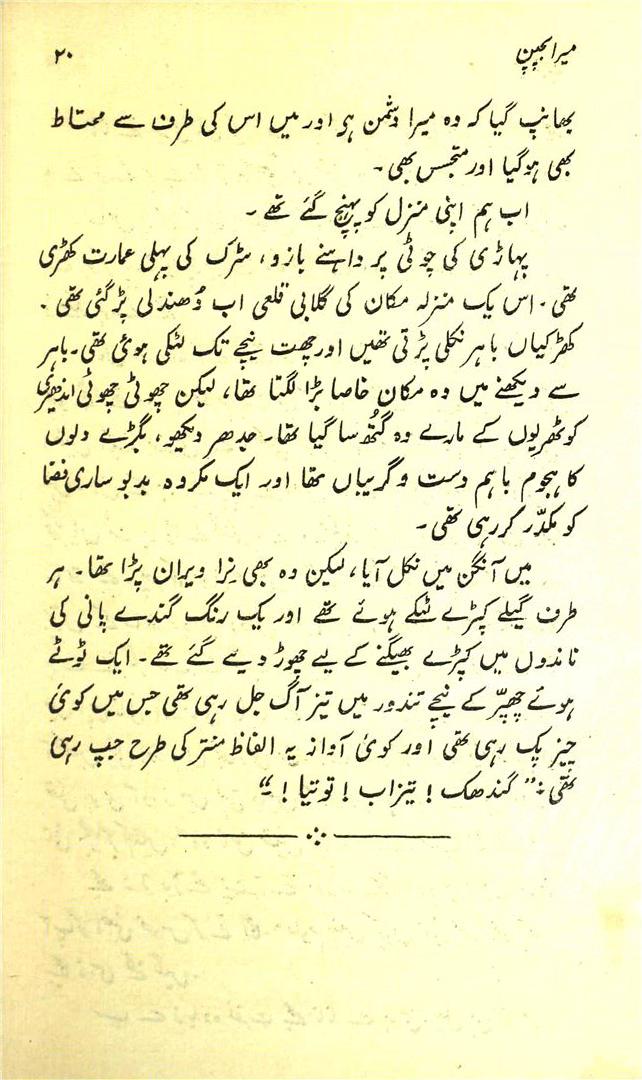 میرا بچپن ۲۰
بھانپ گیا کہ وہ میرا دشمن ہو اور میں اس کی طرف سے محتاط
بھی ہوگیا اور متجسس بھی۔
اب ہم اپنی منزل کو پہنچ گئے تھے۔
پہاڑی کی چوٹی پر داہنے بازو، سڑک کی پہلی عمارت کھڑی
تھی۔ اس یک منزلہ مکان کی گلابی قلعی اب دُھندلی پڑ گئی تھی۔
کھڑکیاں باہر نکلی پڑتی تھیں اور چھت نیچے تک لٹکی ہوئی تھی۔ باہر
سے دیکھنے میں وہ مکان خاصا بڑا لگتا تھا، لیکن چھوٹی چھوٹی اندھیری
کوٹھریوں کے مارے وہ گُتھ سا گیا تھا۔ جدھر دیکھو، بگڑے دلوں
کا ہجوم باہم دست و گریباں تھا اور ایک مکروہ بدبو ساری فضا
کو مکدّر کر رہی تھی۔
میں آنگن میں نکل آیا، لیکن وہ بھی نِرا ویران پڑا تھا۔ ہر
طرف گیلے کپڑے ٹنکے ہوئے تھے اور یک رنگ گندے پانی کی
ناندوں میں کپڑے بھیگنے کے لیے چھوڑ دیے گئے تھے۔ ایک ٹوٹے
ہوئے چھپّر کے نیچے تندور میں تیز آگ جل رہی تھی جس میں کوئی
چیز پک رہی تھی اور کوئی آواز یہ الفاظ منتر کی طرح جپ رہی
تھی: ”گندھک! تیزاب! توتیا!۔“